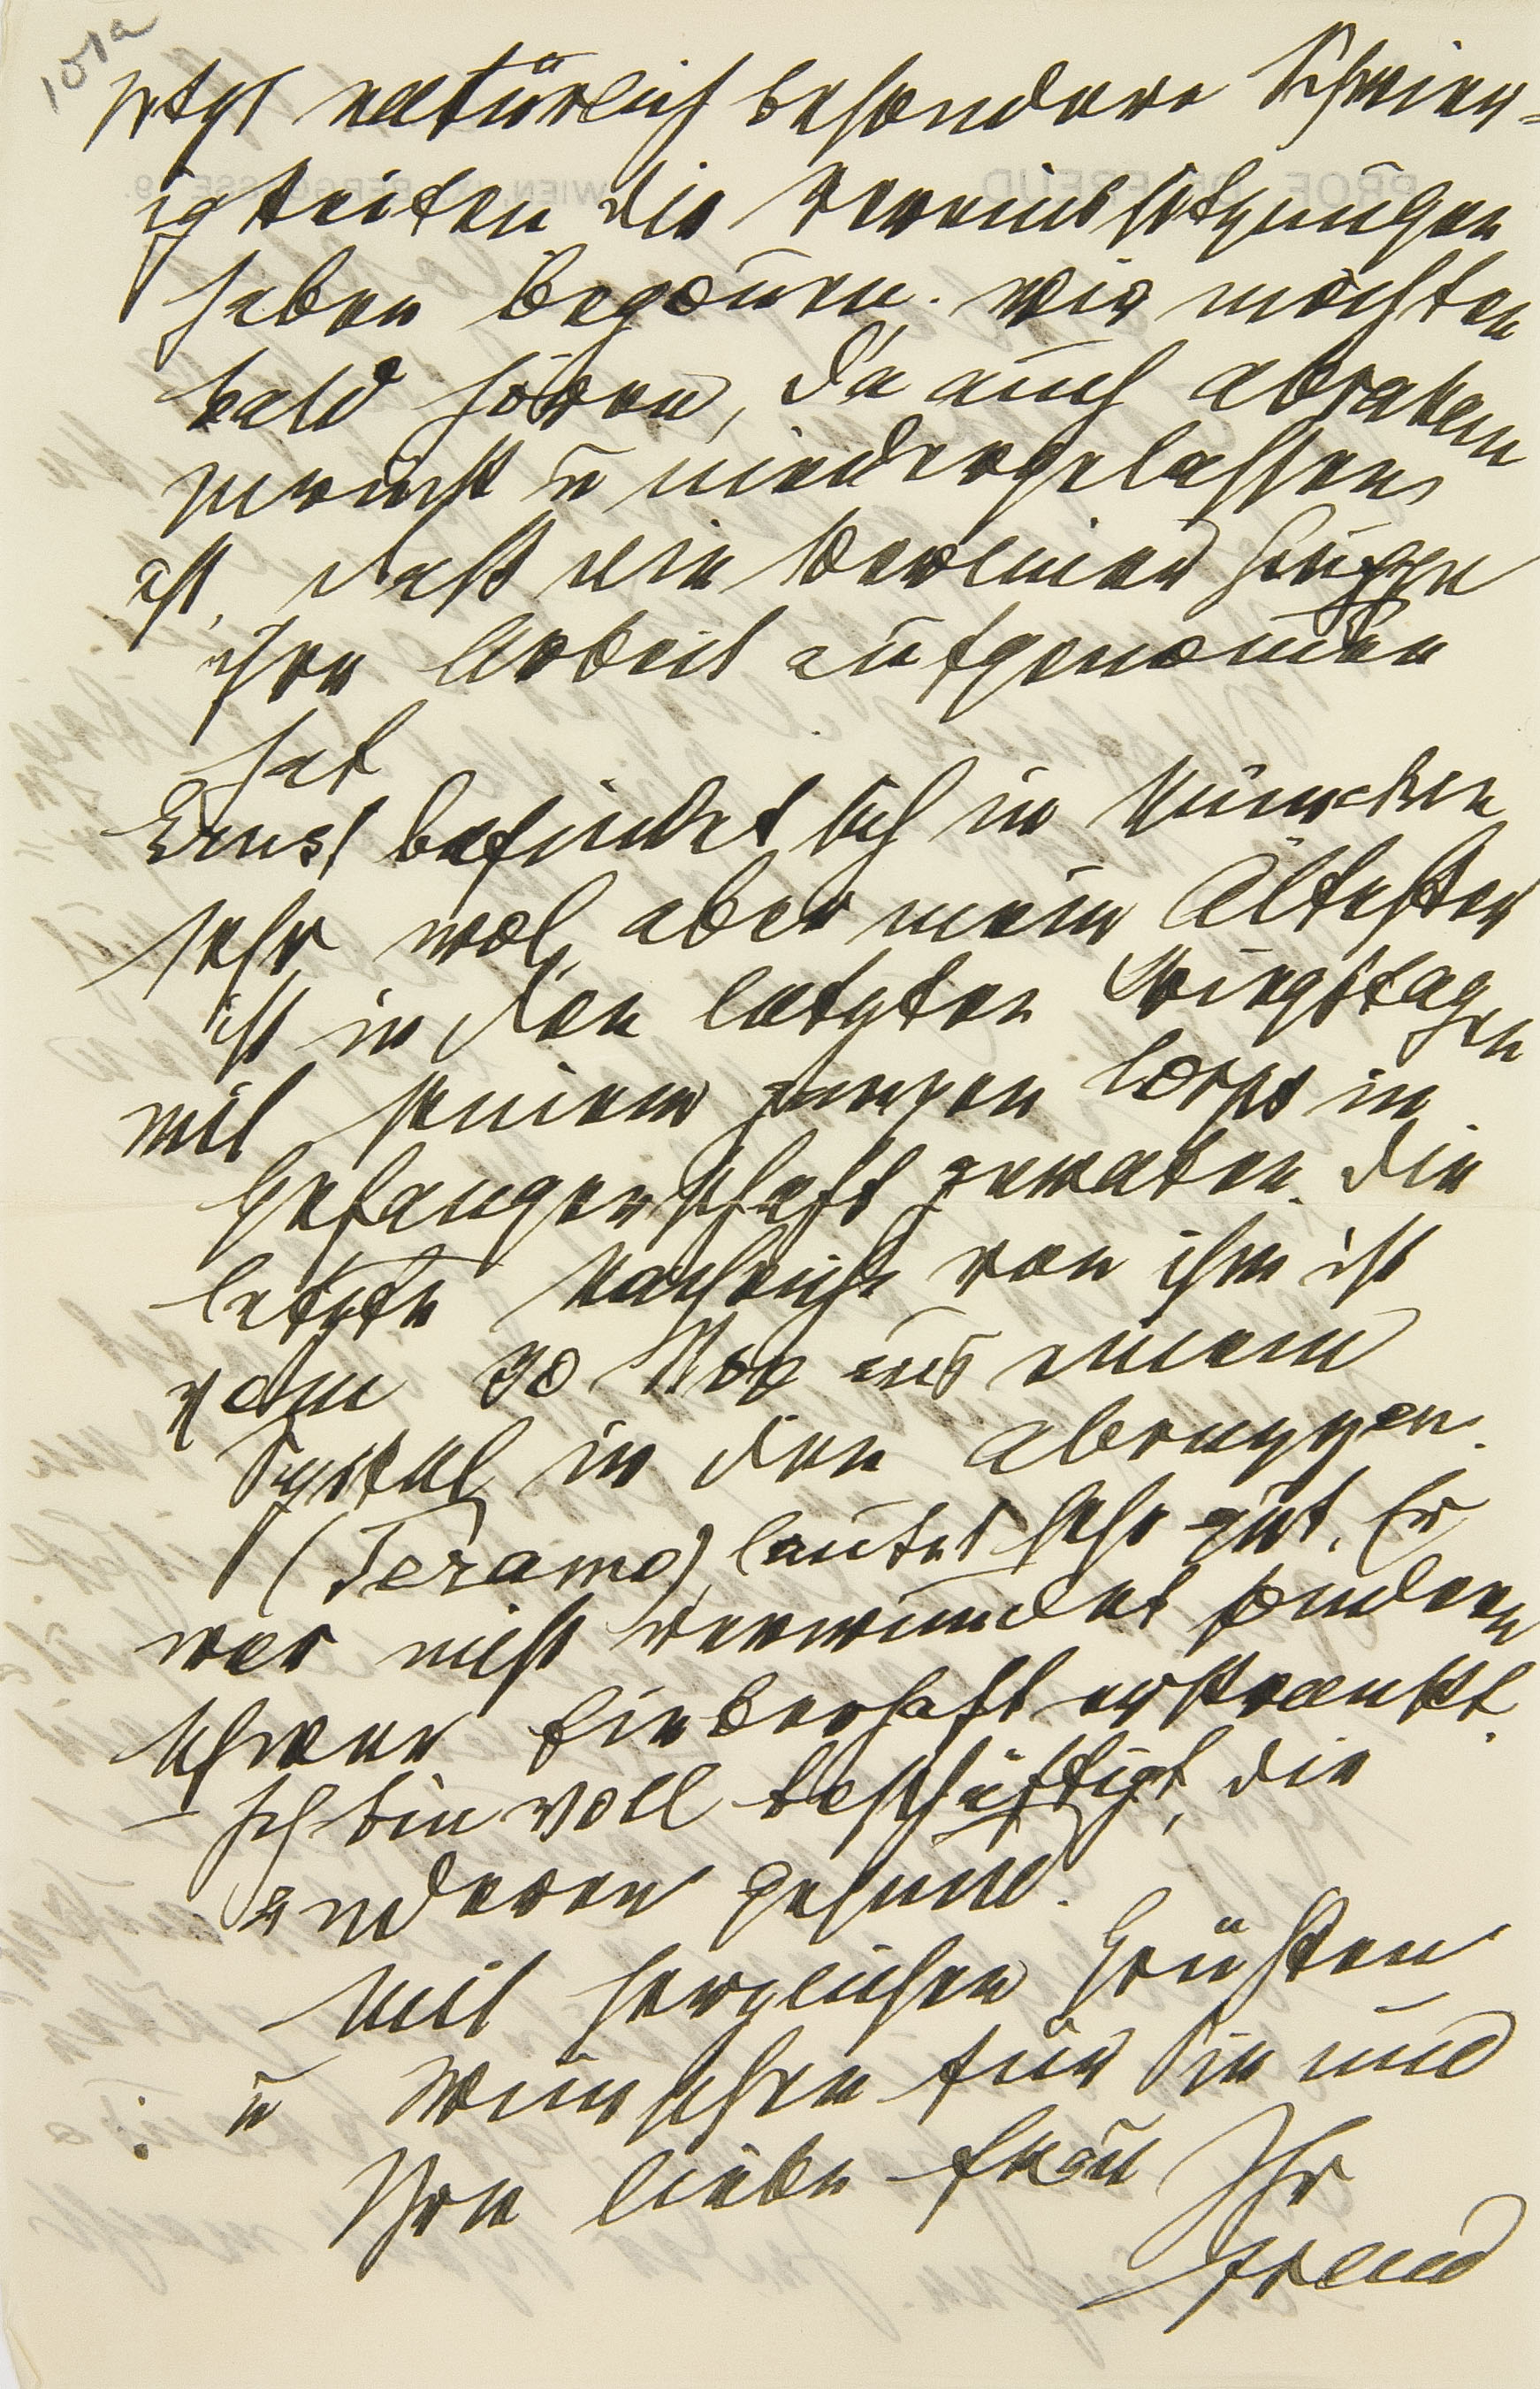 101a
jetzt natürlich besondere Schwier-
igkeiten die Vereinssitzungen
haben begoñen. Wir möchten
bald hören, da auch Abraham
zurück u niedergelassen
ist, daß die Berliner Gruppe
ihre Arbeit aufgenom̄en
hat
Ernst befindet sich in München
sehr wol, aber mein Ältester
ist in den letzten Kriegstagen
mit seinem ganzen Corps in
Gefangenschaft geraten. Die
letzte Nachricht von ihm ist
vom 30 Nov aus einem
Spital in den Abruzzen.
(Teramo), lautet sehr gut. Er
war nicht verwundet sondern
schwer fieberhaft erkrankt.
– Ich bin voll beschäftigt, die
anderen gesund.
Mit herzlichen Grüßen
u Wünschen für Sie und
Ihre liebe Frau Ihr
Freud